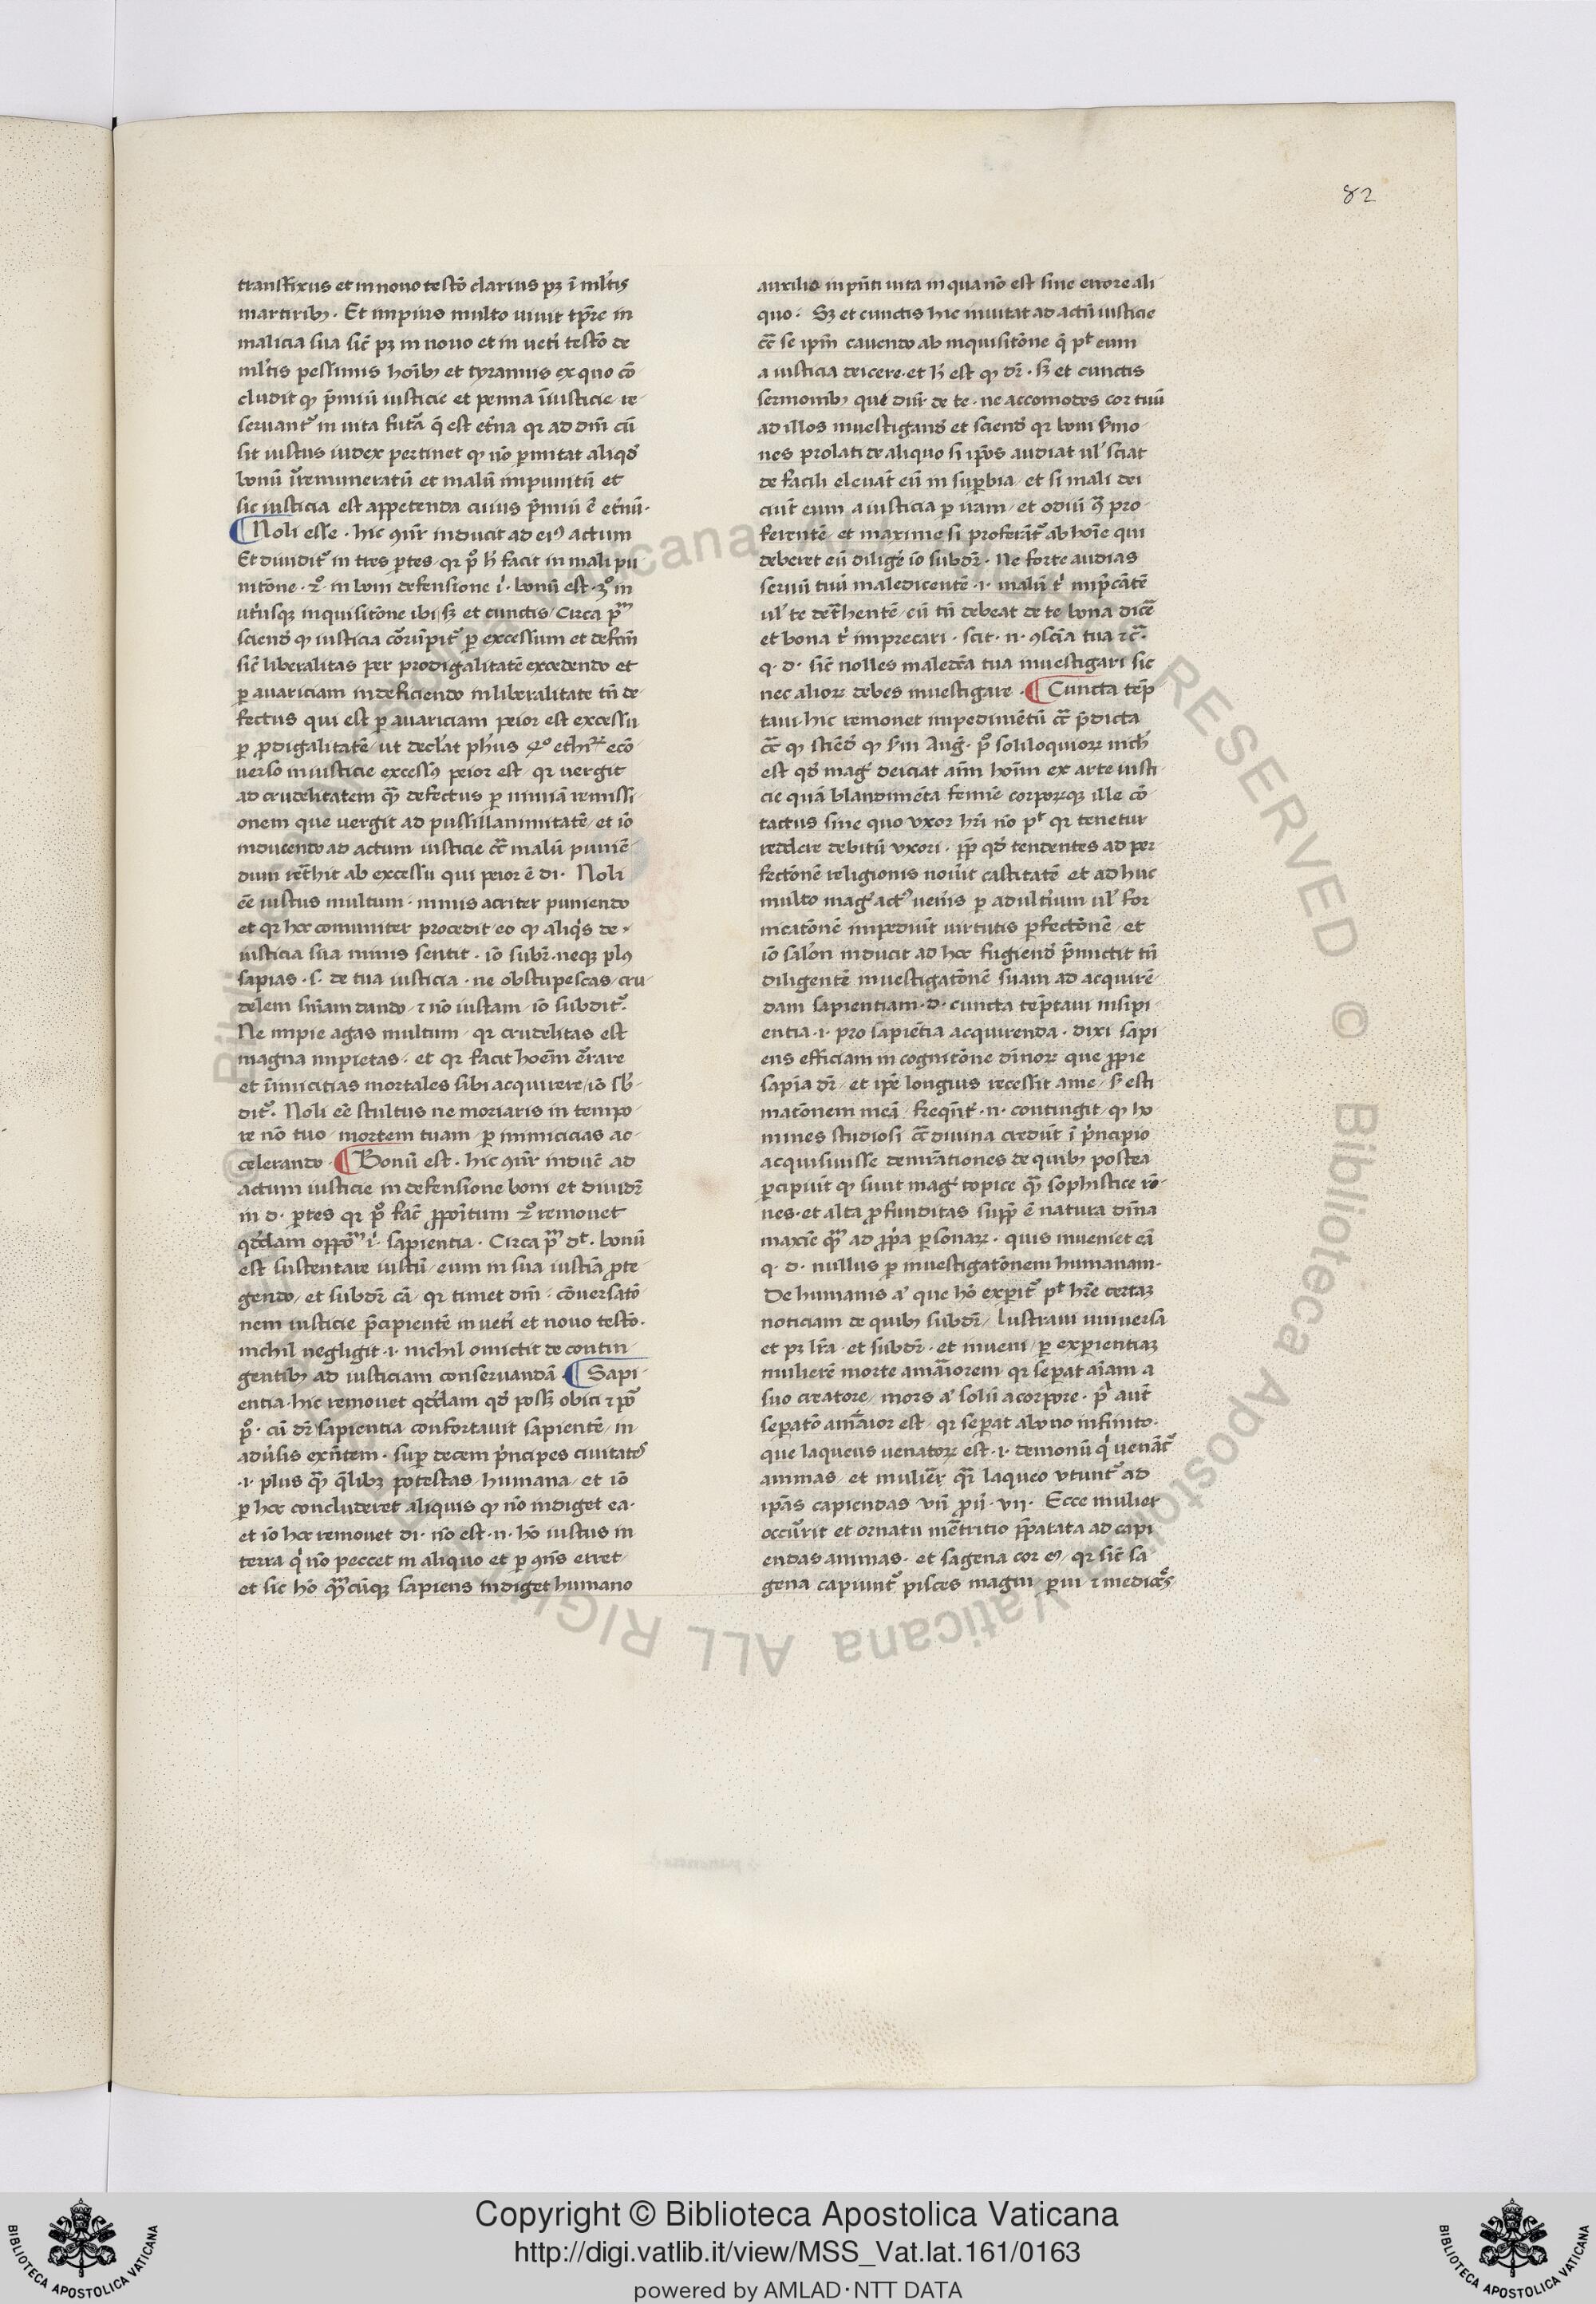 82
transfixus et in nouo testō clarius pꝫ ī ml̃tis
martiribꝫ · Et impius multo uiuit tp̄re in
malicia sua sic̄ pꝫ in nouo et in ueti testō de
ml̃tis pessimis hoībꝫ et tyrannis ex quo cō
cludit ꝙ p̄miū iusticie et penna iīusticie re
seruant᷑ in uita futā q̄ est et̄na qꝛ ad dm̄ cū
sit iustus iudex pertinet ꝙ nō ꝑmitat aliqd̄
bonū īremuneratū et malū impunitū et
sic iusticia est appetenda cuius p̄miū ē et̄nū ·
¶ Noli esse · hic ꝯñr inducit ad eiꝰ actum
Et diuidit᷑ in tres ꝑtes qꝛ pº h̄ facit in mali pu
nitōne · 2º in boni defensione i · bonū est · 3º in
ut̄usqꝫ inquisitōne ibi sꝫ et cunctis / Circa pm̄
sciend̄ ꝙ iusticia cōrūpit᷑ ꝑ excessum et defctm̄
sic̄ liberalitas per prodigalitatē excedendo et
ꝑ auariciam in deficiendo in liberalitate tn̄ de
fectus qui est ꝑ auariciam peior est excessu
ꝑ ꝓdigalitatē ut declat ph̄us 4º ethi᷑ ecō
uerso in iusticie excessꝰ peior est qꝛ uergit
ad crudelitatem qm̄ defectus ꝑ nimiā remissi
onem que uergit ad pussillanimitatē et iō
inducendo ad actum iusticie cc̄ malū puniē
dum ret̄hit ab excessu qui peior ē di · Noli
eē iustus multum · nimis acriter puniendo
et qꝛ hoc comuniter procedit eo ꝙ aliqis de
iusticia sua nimis sentit · iō subr̄ neqꝫ plꝰ
sapias · s · de tua iusticia · ne obstupescas / cru
delem sniam dando ⁊ nō iustam iō subdit᷑
Ne impie agas multum qꝛ crudelitas est
magna impietas · et qꝛ facit hoem ēr̄are
et inimicitias mortales sibi acquirere / iō sb̄
dit᷑ · Noli eē stultus ne moriaris in tempo
re nō tuo / mortem tuam / ꝑ inimicicias ac
celerando · ¶ Bonū est · hic ꝯñr induc̄ ad
actum iusticie in defensione boni et diuidr̄
in d · ꝑtes qꝛ pº fac̄ ꝓpoitum 2º remouet
qd̄dam oppōm̄ i · sapientia · Circa pm̄ dt · bonū
est sustentare iustū / eum in sua iustā ꝓte
gendo / et subdr̄ cā · qꝛ timet dm̄ · cōuersatō
nem iusticie p̄cipientē in ueti et nouo testō ·
nichil negligit · i · nichil omictit de contin
gentibꝫ ad iusticiam conseruandā ¶ Sapi
entia · hic remouet qd̄dam qd̄ possꝫ obici ⁊ pº
pº · cū dr̄ sapientia confortauit sapientē in
adūsis exn̄tem · suꝑ decem p̄ncipes ciuitatꝭ
· i · plus qm̄ q̄libꝫ potestas humana / et iō
ꝑ hoc concluderet aliquis ꝙ nō indiget ea ·
et iō hoc remouet di · nō est · n · hō iustus in
terra q̇ nō peccet in aliquo et ꝑ ꝯñs erret
et sic hō qm̄cūqꝫ sapiens indiget humano
auxilio in pn̄ti uita in qua nō est sine errore ali
quo · Sꝫ et cunctis hic inuitat ad actū iusticie
cc̄ se ipm̄ cauendo ab inquisitōne q̄ pt eum
a iusticia deicere · et h̄ est ꝙ dr̄ · sꝫ et cunctis
sermonibꝫ qui dn̄r de te · ne accomodes cor tuū
ad illos inuestigand̄ et sciend̄ qꝛ boni smo
nes prolati de aliquo si ip̄os audiat ul̄ sciat
de facili eleuāt eū in suꝑbia / et si mali dei
ciūt eum a iusticia ꝑ iram / et odiū ꝯ̄ pro
ferentē / et maxime si proferāt᷑ ab hoīe qui
deberet eū diligē iō subdr̄ · Ne forte audias
seruū tuū maledicentē · i · malū t̄ imp̄cātē
ul̄ te det̄hentē / cū tn̄ debeat de te bona dic̄e
et bona t̄ imprecari · scit · n · ꝯscīa tua ⁊c̄ ·
q · d · sic̄ nolles maledc̄a tua inuestigari sic
nec alioꝝ debes inuestigare · ¶ Cuncta tēp
taui · hic remonet impedimētū cc̄ p̄dicta
cc̄ ꝙ sciēd̄ ꝙ s̄m Aug̃ · pº soliloquioꝝ nich̄
est qd̄ mag̃ deiciat aīm hoīm ex arte iusti
cie quā blandimēta femie corpoꝝqꝫ ille cō
tactus sine quo uxor hr̄i nō pt qꝛ tenetur
reddere debitū uxori · ꝓp̄ qd̄ tendentes ad ꝑ
fectōnē religionis nouūt castitatē et ad huc
multo mag̃ actꝰ uenis ꝑ adultium ul̄ for
nicatōnē impediūt uirtutis ꝑfectōnē / et
iō salōn inducit ad hoc fugiend̄ p̄mictit tn̄
diligentē inuestigatōnē suam ad acquirē
dam sapientiam · d · cuncta tēptaui in sapi
entia · i · pro sapiētia acquirenda · dixi sapi
ens efficiam in cognitōne diuinoꝝ que ꝓpie
sapīa dr̄ · et ip̄e longius recessit a me / s̄ esti
matōnem meā / freqn̄t · n · contingit / ꝙ ho
mines studiosi cc̄ diuina credūt ī p̄ncipio
acquisiuisse demr̄ationes de quibꝫ postea
ꝑcipiūt ꝙ sunt mag̃ topice qm̄ sophistice rō
nes · et alta ꝓfunditas supp̄ ē natura diīna
maxīe qm̄ ad ꝓp̄a ꝑsonaꝝ · quis inueniet eā
q · d · nullus ꝑ inuestigatōnem humanam ·
De humanis aͥ que hō expit᷑ pt hr̄e certaꝫ
noticiam de quibꝫ subdr̄ / Lustraui uniuersa
et pꝫ lr̄a · et subdr̄ · et inueni / ꝑ experientiaꝫ
mulierē morte amāiorem qꝛ seꝑat aīam a
suo creatore / mors aͥ solū a corpore · pͥ aūt
seꝑatō amāior est · qꝛ seꝑat a bono infinito ·
que laqueus uenatoꝝ est · i · demonū q̇ uenāt᷑
animas · et mulieꝝ qͣꝛ laqueo utunt᷑ ad
ip̄as capiendas un̄ ꝓū · vii · Ecce mulier
occūrit et ornatu mētritio p̄ꝑatata ad capi
endas animas · et sagena cor eꝰ / qꝛ sic̄ sa
gena capiunt᷑ pisces magni ꝑui ⁊ medioc̄s
Copyright © Biblioteca Apostolica Vaticana
http://digi.vatlib.it/view/MSS_Vat.lat.161/0163
powered by AMLAD·NTT DATA
BIBLIOTECA APOSTOLICA VATICANA
BIBLIOTECA APOSTOLICA VATICANA
© Biblioteca Apostolica Vaticana ALL RIGHTS RESERVED © Biblioteca Apostolica Vaticana ALL RIGHTS RESERVED